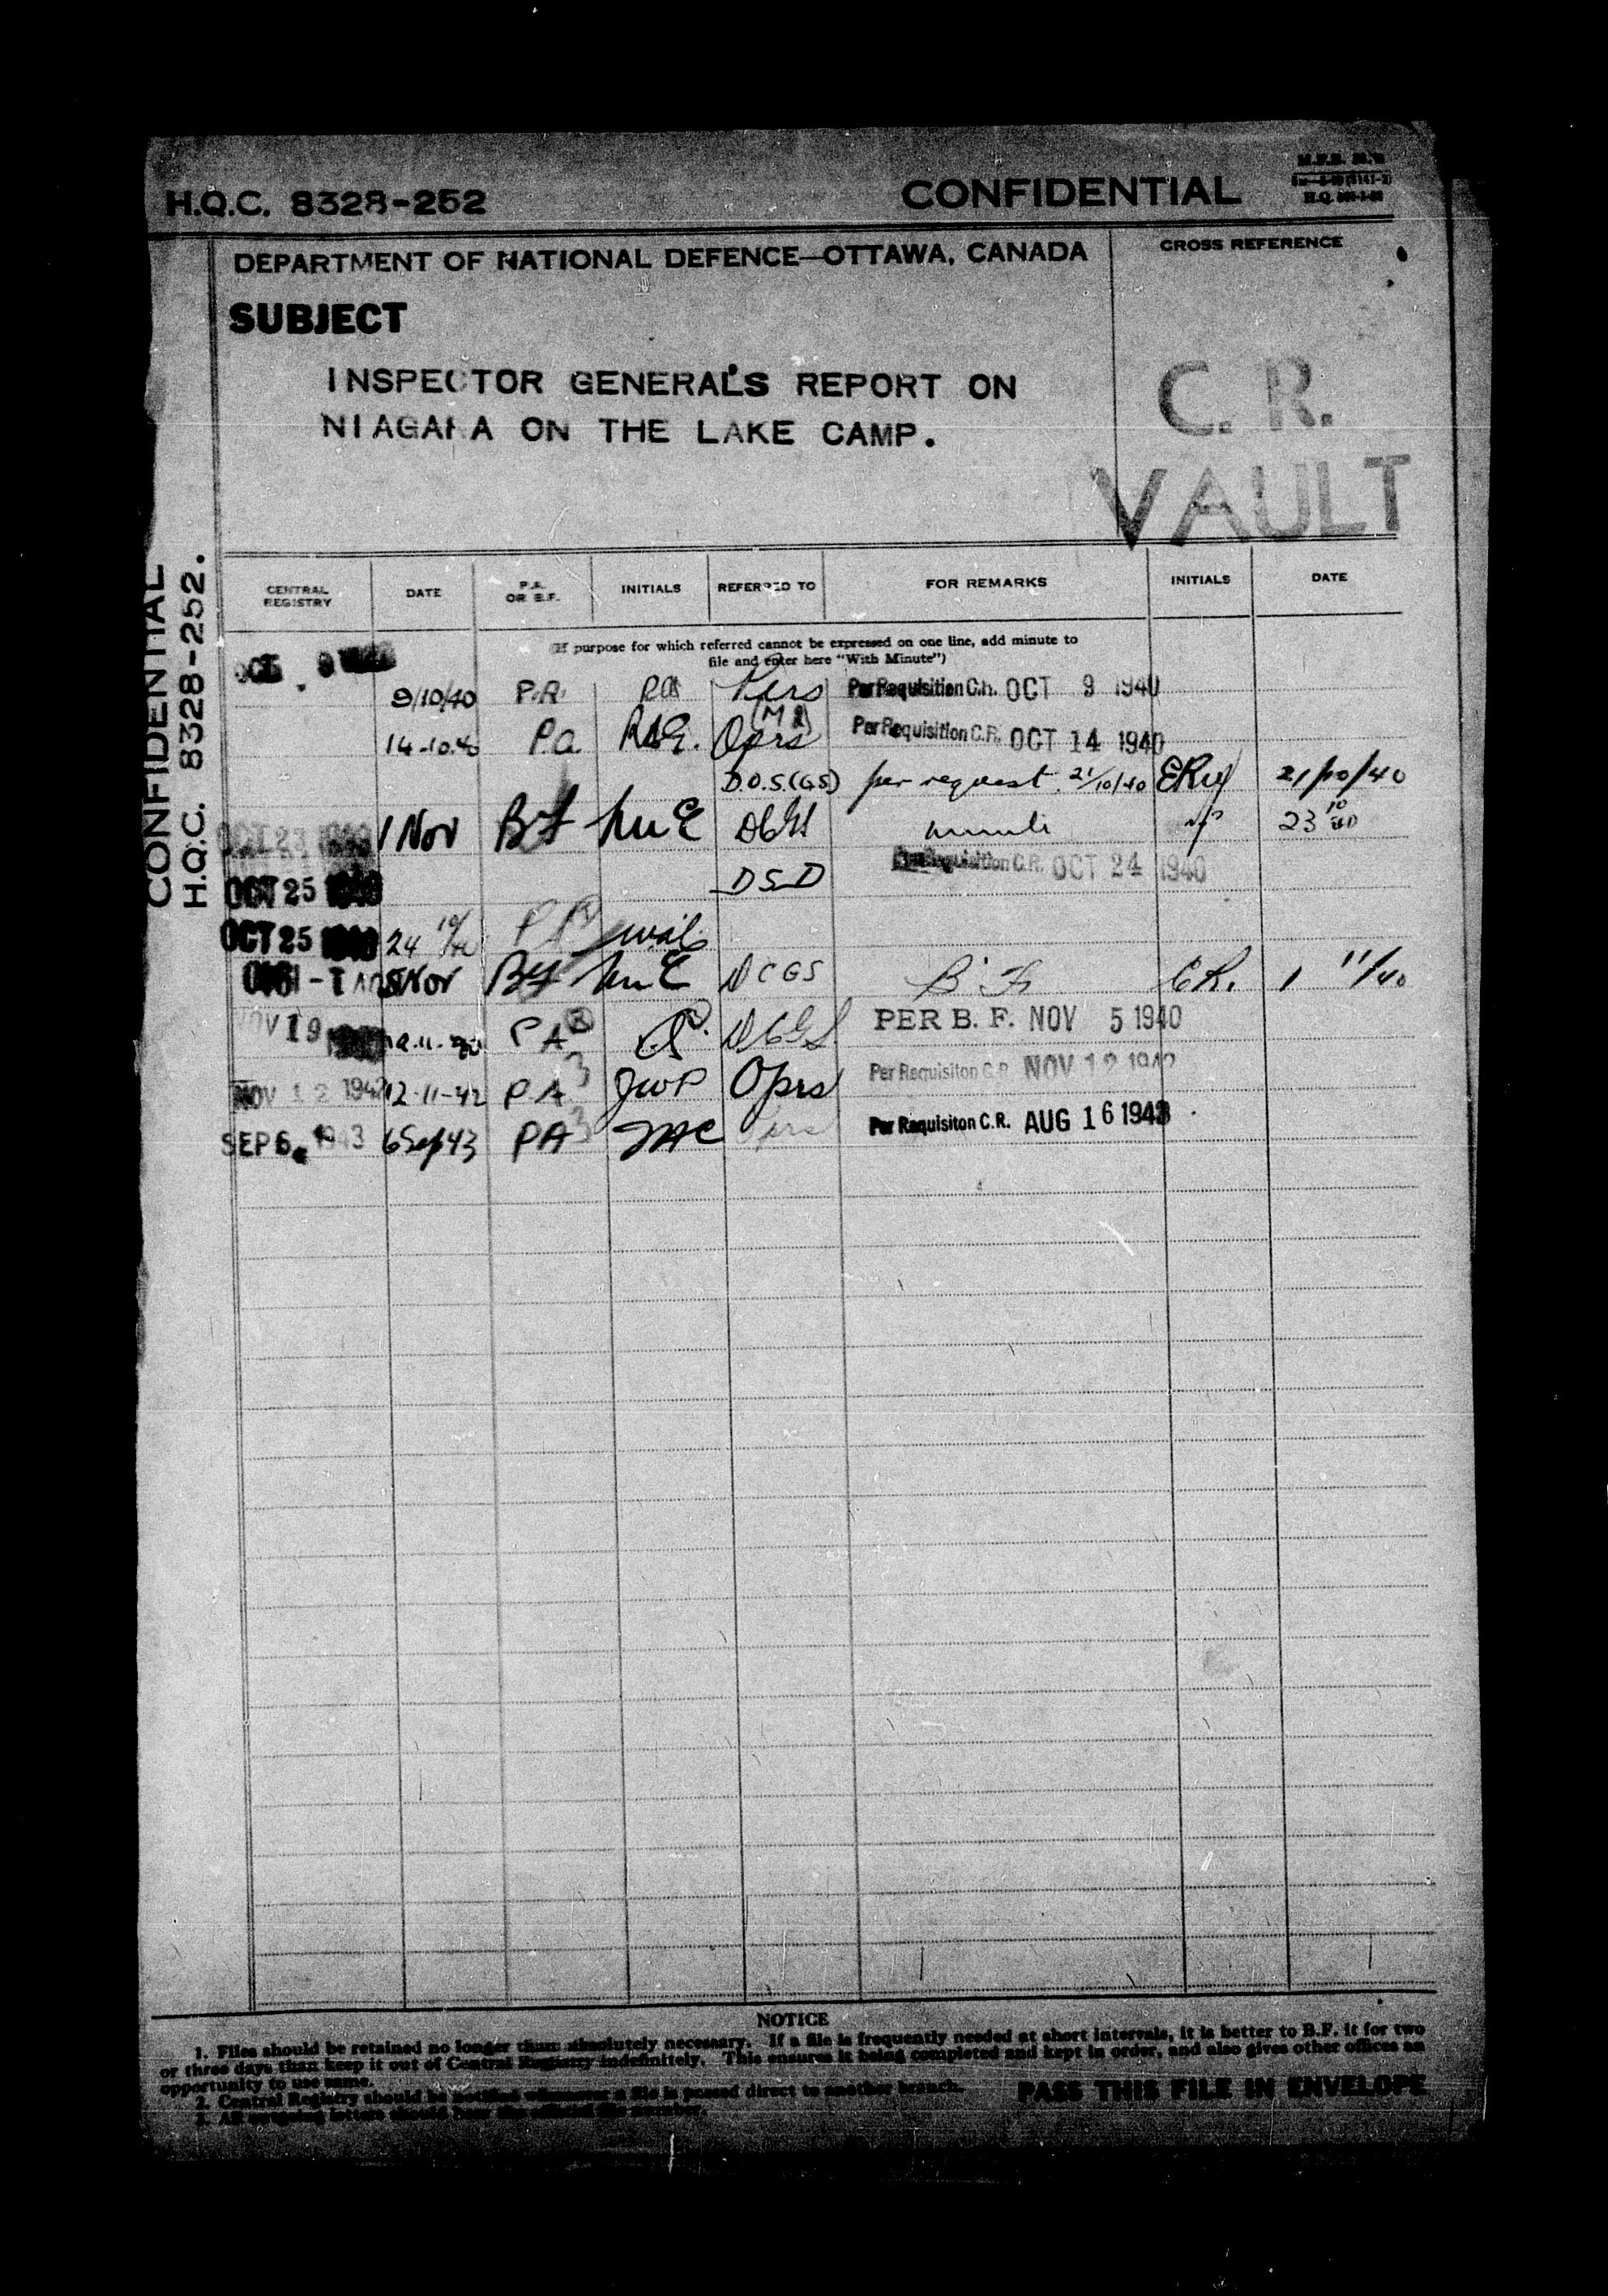 H.Q.C. 8328-252
CONFIDENTIAL
DEPARTMENT OF NATIONAL DEFENCE—OTTAWA, CANADA
CROSS REFERENCE
SUBJECT
INSPECTOR GENERAL'S REPORT ON
NIAGARA ON THE LAKE CAMP.
C. R.
VAULT
CONFIDENTIAL
H.Q.C. 8328-252.
CENTRAL REGISTRY DATE P.A. OR B.F. INITIALS REFERRED TO FOR REMARKS INITIALS DATE
(If purpose for which referred cannot be expressed on one line, add minute to
file and enter here "With Minute")
9/10/40 P.A. Per Requisition C.R. OCT 9 1940
14-10-40 P.a. Oprs Per Requisition C.R. OCT 14 1940
D.O.S.(GS) per request. 21/10/40 21/10/40
OCT 23 1940 1 Nov BF DCGS 23 10/40
OCT 25 1940 DSD Per Requisition C.R. OCT 24 1940
OCT 25 1940 24 10/40 PA
5 Nov BF DCGS B.F. C.R. 1 11/40
NOV 19 PA DCGS PER B. F. NOV 5 1940
NOV 12 1942 12-11-42 PA 3 JWP Oprs Per Requisiton C.R. NOV 12 1942
SEP 6 1943 6 Sep 43 PA 3 Oprs Per Requisiton C.R. AUG 16 1943
NOTICE
1. Files should be retained no longer than absolutely necessary. If a file is frequently needed at short intervals, it is better to B.F. it for two
or three days than keep it out of Central Registry indefinitely. This ensures it being completed and kept in order, and also gives other offices an
opportunity to use same.
2. Central Registry should be notified whenever a file is passed direct to another branch.
3. All outgoing letters should bear the
PASS THIS FILE IN ENVELOPE